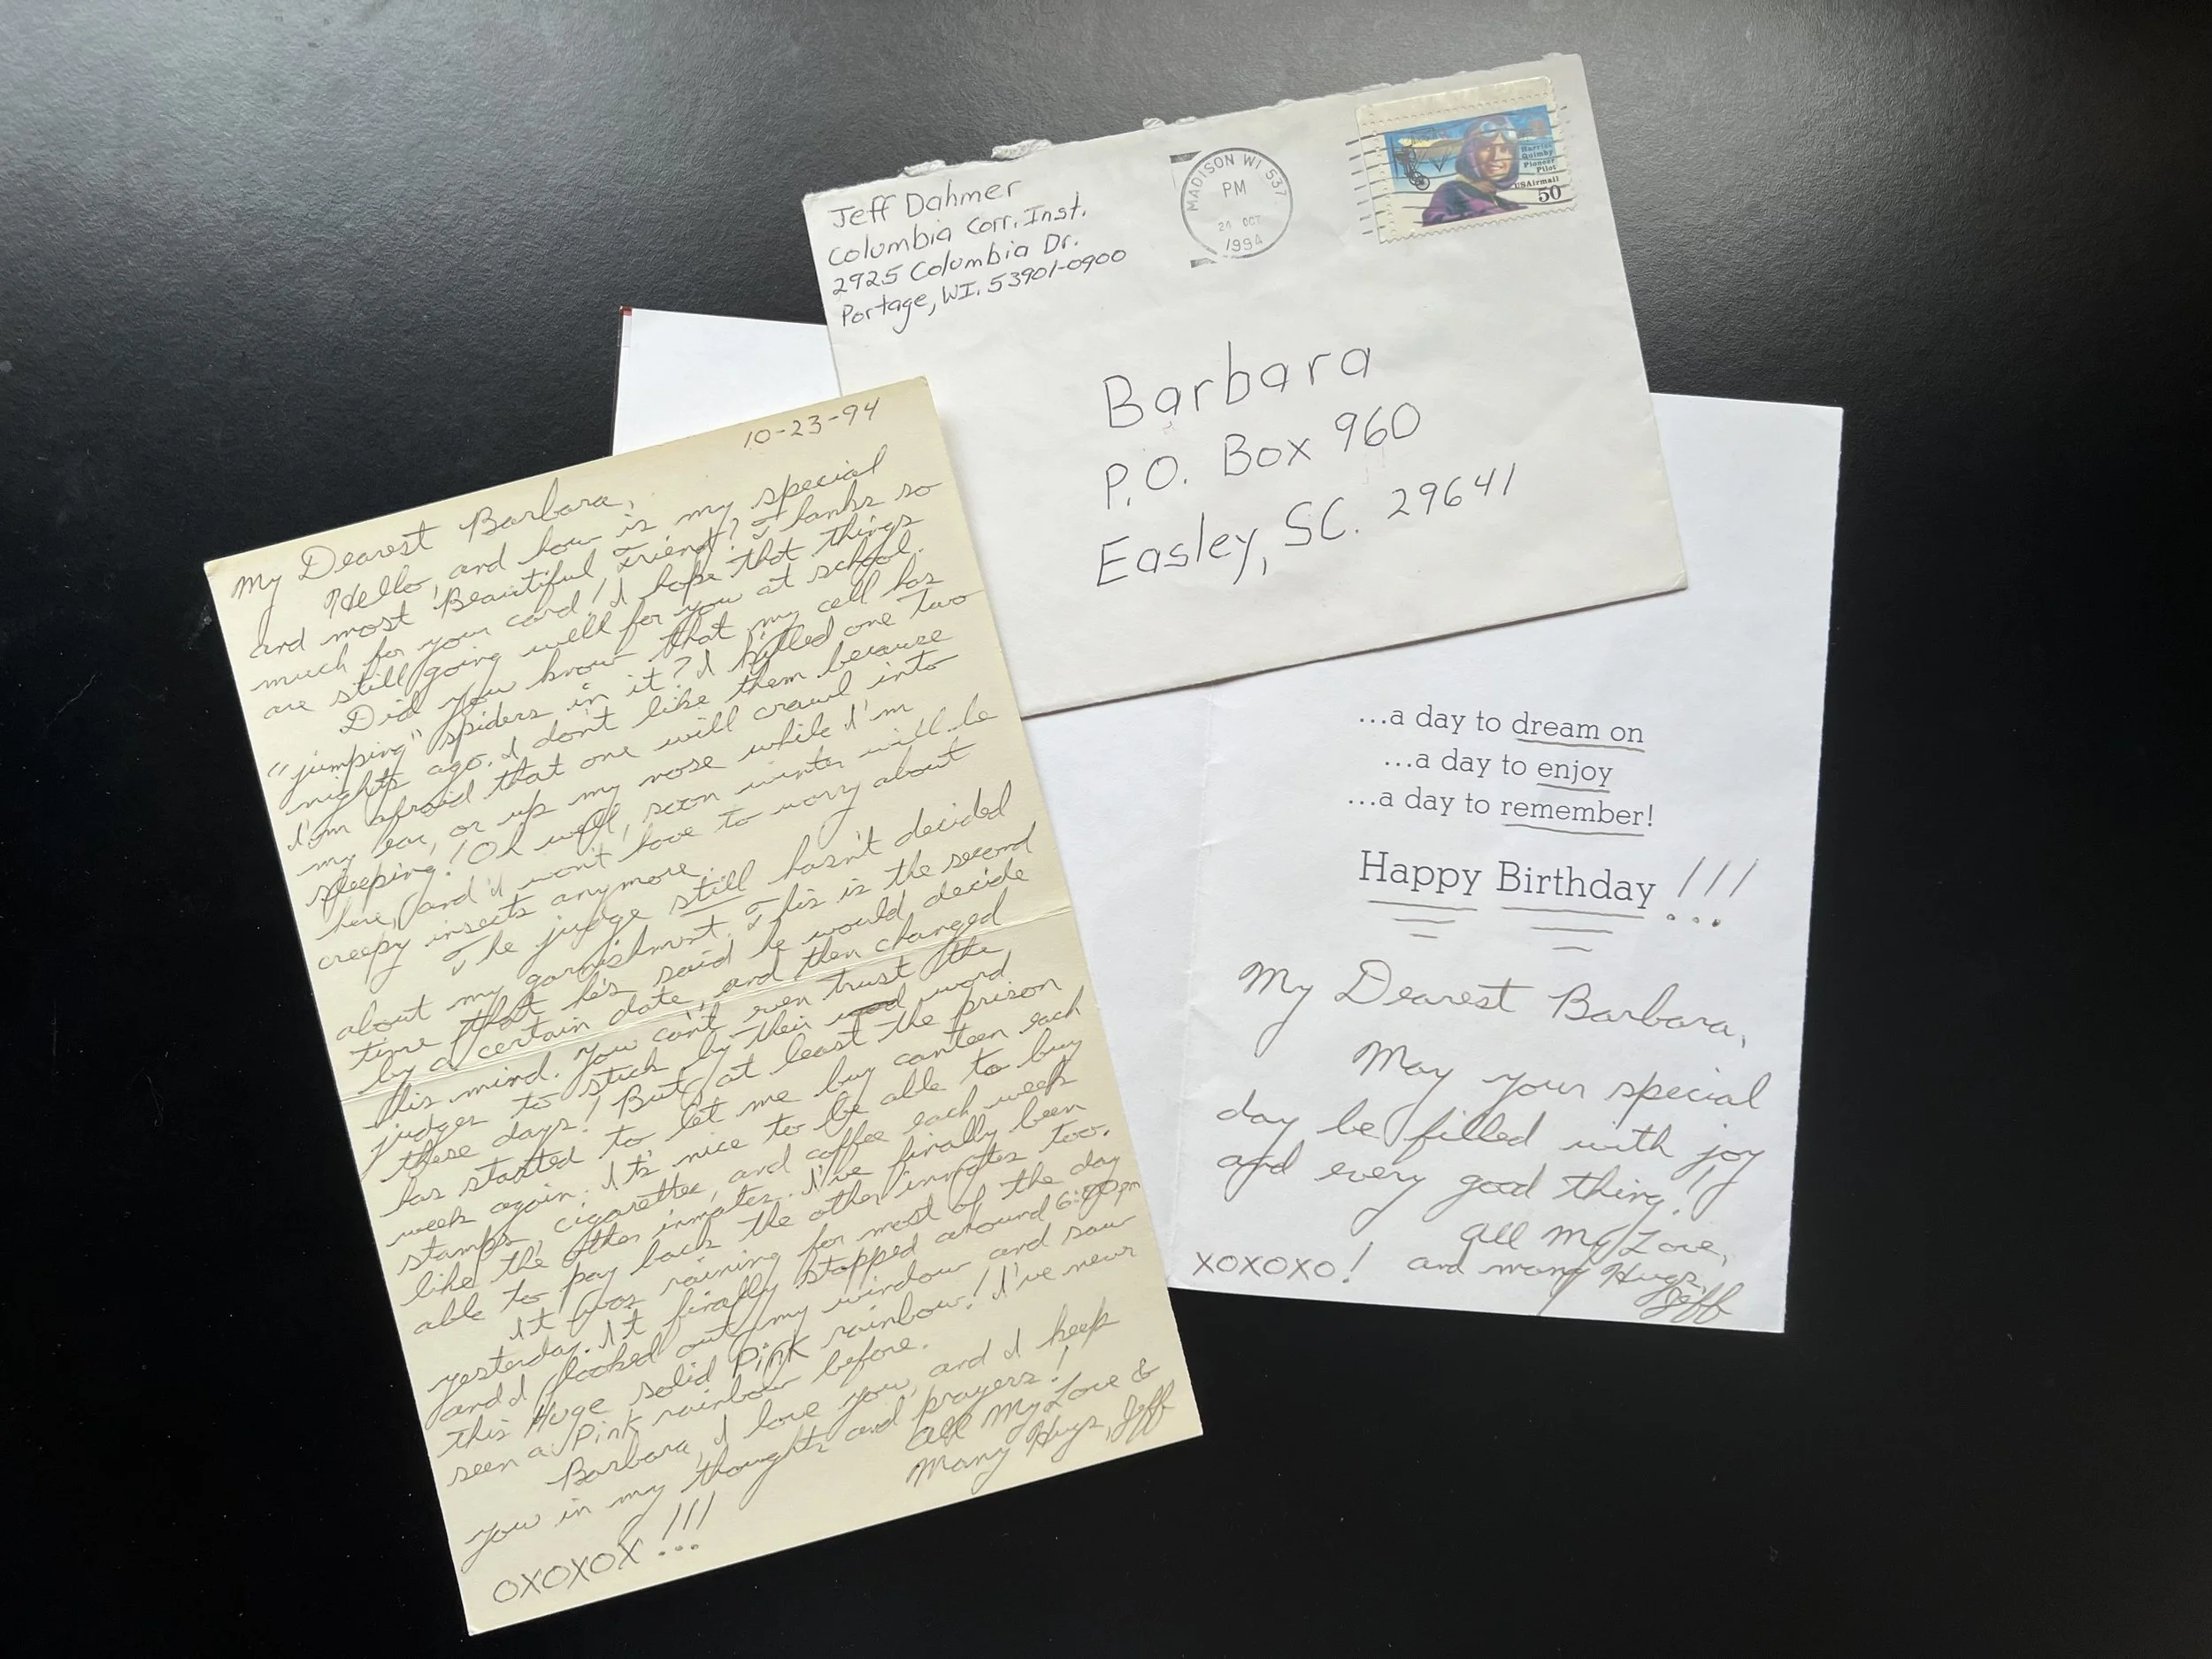 Jeff Dahmer
Columbia Corr. Inst.
2925 Columbia Dr.
Portage, WI. 53901-0900
MADISON WI 537
PM
OCT
1994
Harriet
Quimby
Pioneer
Pilot
USAirmail
50
Barbara
P.O. Box 960
Easley, SC. 29641
10-23-94
My Dearest Barbara,
Hello, and how is my special
and most Beautiful Friend? Thanks so
much for your card! I hope that things
are still going well for you at school.
Did you know that my cell has
"jumping" spiders in it? I killed one two
nights ago. I don't like them because
I'm afraid that one will crawl into
my ear, or up my nose while I'm
sleeping! Oh well, soon winter will be
here, and I won't have to worry about
creepy insects anymore.
The judge still hasn't decided
about my garnishment. This is the second
time that he's said he would decide
by a certain date, and then changed
his mind. You can't even trust the
judges to stick by their word
these days! But at least the prison
has started to let me buy canteen each
week again. It's nice to be able to buy
stamps, cigarettes, and coffee each week
like the other inmates. I've finally been
able to pay back the other inmates too.
It was raining for most of the day
yesterday. It finally stopped around pm
and I looked out my window and saw
this Huge solid Pink rainbow! I've never
seen a Pink rainbow before.
Barbara, I love you, and I keep
you in my thoughts and prayers!
All My Love &
Many Hugs, Jeff
OXOXOX!!!
...a day to dream on
...a day to enjoy
...a day to remember!
Happy Birthday!!!
My Dearest Barbara,
May your special
day be filled with joy
and every good thing!
All My Love,
XOXOXO! and many Hugs,
Jeff